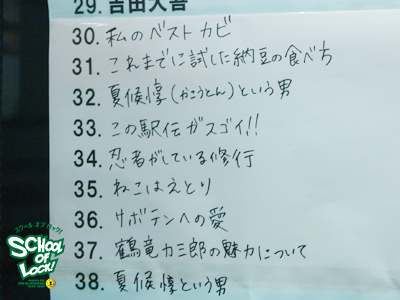 29. 吉田大吾
30. 私のベストカビ
31. これまでに試した納豆の食べち
32. 夏候惇(かこうとん)という男
33. この駅伝がスゴイ!!
34. 忍者がしている修行
35. ねこはえとり
36. サボテンへの愛
37. 鶴竜力三郎の魅力について
38. 夏候惇という男
スクール オブ ロック!
SCHOOL
OF
LOCK!